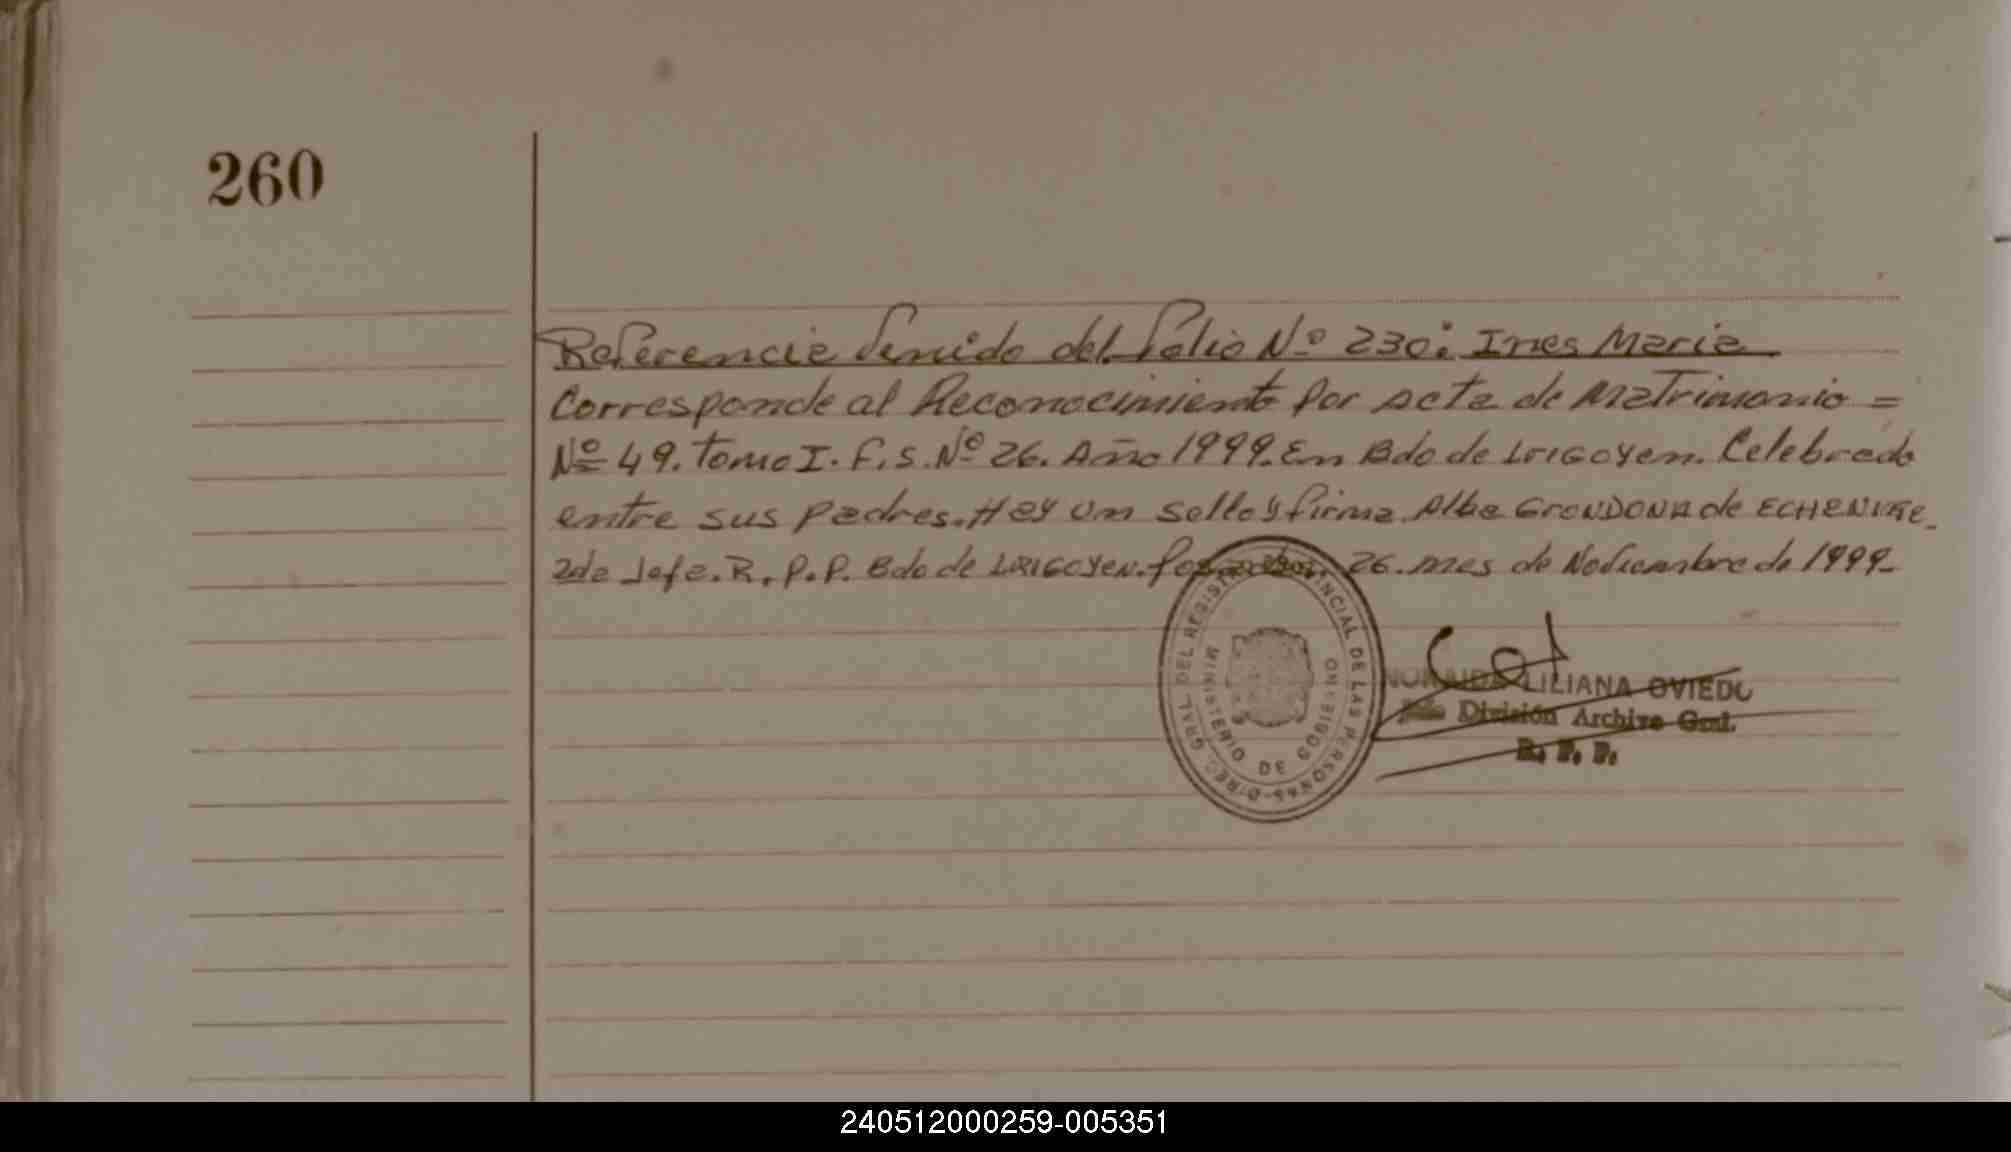 260
Referencia Venida del Folio Nº 230: Ines Maria
Corresponde al Reconocimiento por acta de Matrimonio =
Nº 49. tomo I. F.S. Nº 26. Año 1999. En Bdo de Irigoyen. Celebrado
entre sus padres. Hay un sello y firma. Alba GRONDONA de ECHENIKE.
Jefe. R. P. P. Bdo de IRIGOYEN. 26. mes de Noviembre de 1999-
DIREC. GRAL. DEL REGISTRO PROVINCIAL DE LAS PERSONAS
MINISTERIO DE GOBIERNO
LILIANA OVIEDO
División Archivo Gral.
R. P. P.
240512000259-005351